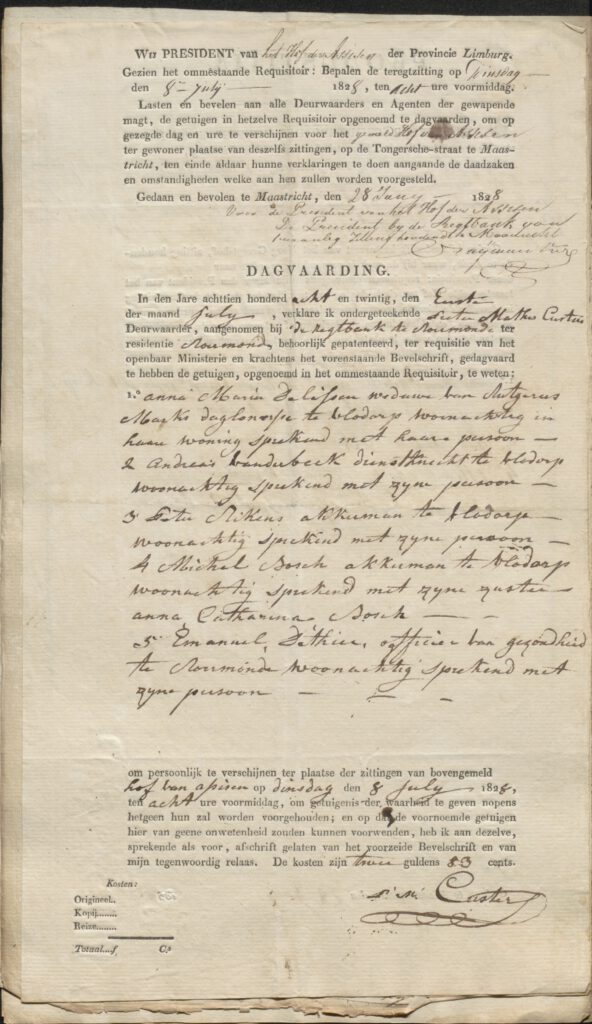 WIJ PRESIDENT van het Hof der Assisen der Provincie Limburg.
Gezien het ommestaande Requisitoir: Bepalen de teregtzitting op Dinsdag
den 8en July 1828, ten acht ure voormiddag.
Lasten en bevelen aan alle Deurwaarders en Agenten der gewapende
magt, de getuigen in hetzelve Requisitoir opgenoemd te dagvaarden, om op
gezegde dag en ure te verschijnen voor het Hof der Assisen
ter gewoner plaatse van deszelfs zittingen, op de Tongersche-straat te Maas-
tricht, ten einde aldaar hunne verklaringen te doen aangaande de daadzaken
en omstandigheden welke aan hen zullen worden voorgesteld.
Gedaan en bevolen te Maastricht, den 28 Juny 1828
Voor de President van het Hof der Assisen
De President by de Regtbank van
eersten aanleg Zitting houdende te Maastricht
DAGVAARDING.
In den Jare achttien honderd acht en twintig, den Eerste
der maand July, verklare ik ondergeteekende Peter Mathis Custers
Deurwaarder, aangenomen bij de regtbank te Roermonde ter
residentie Roermonde, behoorlijk gepatenteerd, ter requisitie van het
openbaar Ministerie en krachtens het vorenstaande Bevelschrift, gedagvaard
te hebben de getuigen, opgenoemd in het ommestaande Requisitoir, te weten;
1.° anna Maria Delissen weduwe van Rutgerus
Marks daglonerse te vlodorp woonachtig in
haare woning sprekend met haare persoon —
2 Andreas vanderbeek dienstknecht te vlodorp
woonachtig sprekend met zyne persoon —
3 Peter Rikens akkerman te vlodorp —
woonachtig sprekend met zyne persoon —
4 Michel Bosch akkerman te vlodorp
woonachtig sprekend met zyne zuster —
anna Catharina Bosch — — —
5 Emanuel Dethier, officier van gezondheid
te Roermonde woonachtig sprekend met
zyne persoon — — —
om persoonlijk te verschijnen ter plaatse der zittingen van bovengemeld
hof van assisen op dinsdag den 8 July 1828,
ten acht ure voormiddag, om getuigenis der waarheid te geven nopens
hetgeen hun zal worden voorgehouden; en op dat de voornoemde getuigen
hier van geene onwetenheid zouden kunnen voorwenden, heb ik aan dezelve,
sprekende als voor, afschrift gelaten van het voorzeide Bevelschrift en van
mijn tegenwoordig relaas. De kosten zijn twee guldens 83 cents.
Kosten:
P. M. Custers
Origineel..
Kopij.......
Reize........
Totaal....f C.s